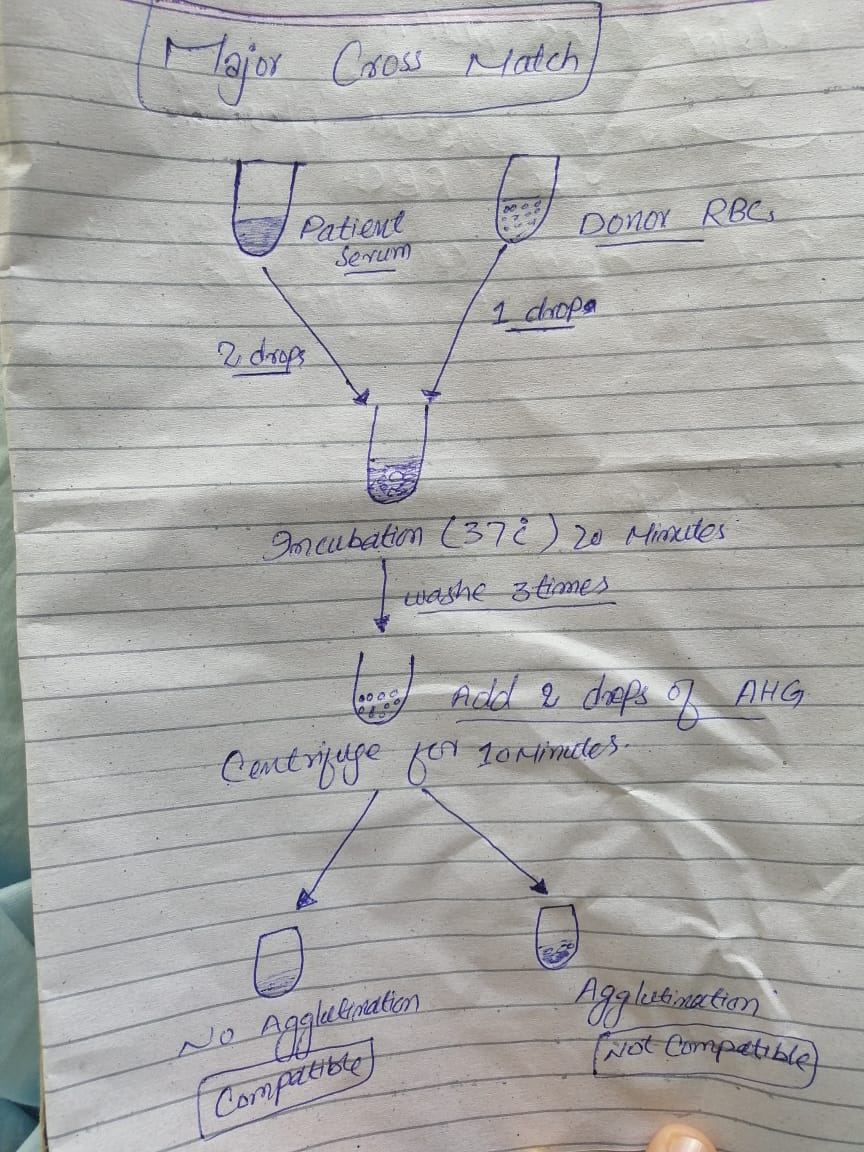 Major Cross Match
Patient
Serum
Donor RBCs
1 drops
2 drops
Incubation (37°c) 20 Minutes
washe 3 times
Add 2 drops of AHG
Centrifuge for 10 Minutes.
No Agglutination
Compatible
Agglutination
Not Compatible